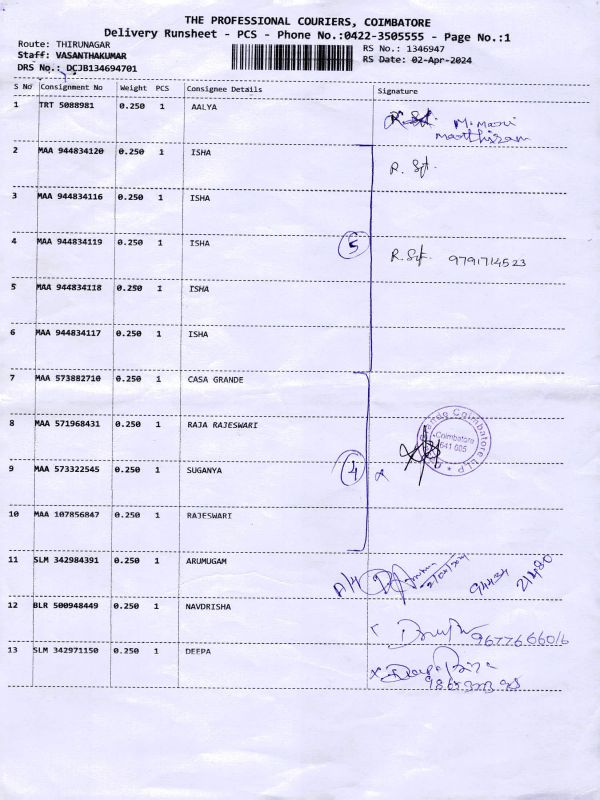 THE PROFESSIONAL COURIERS, COIMBATORE
Delivery Runsheet - PCS - Phone No.:0422-3505555 - Page No.:1
Route: THIRUNAGAR RS No.: 1346947
Staff: VASANTHAKUMAR RS Date: 02-Apr-2024
DRS No.: DCJB134694701
S No Consignment No Weight PCS Consignee Details Signature
1 TRT 5088981 0.250 1 AALYA
2 MAA 944834120 0.250 1 ISHA R. Sgt.
3 MAA 944834116 0.250 1 ISHA
4 MAA 944834119 0.250 1 ISHA 5 R. Sgt. 9791714523
5 MAA 944834118 0.250 1 ISHA
6 MAA 944834117 0.250 1 ISHA
7 MAA 573882710 0.250 1 CASA GRANDE
8 MAA 571968431 0.250 1 RAJA RAJESWARI
Coimbatore LLP
Coimbatore
641 005
9 MAA 573322545 0.250 1 SUGANYA 4
10 MAA 107856847 0.250 1 RAJESWARI
11 SLM 342984391 0.250 1 ARUMUGAM
12 BLR 500948449 0.250 1 NAVDRISHA
13 SLM 342971150 0.250 1 DEEPA